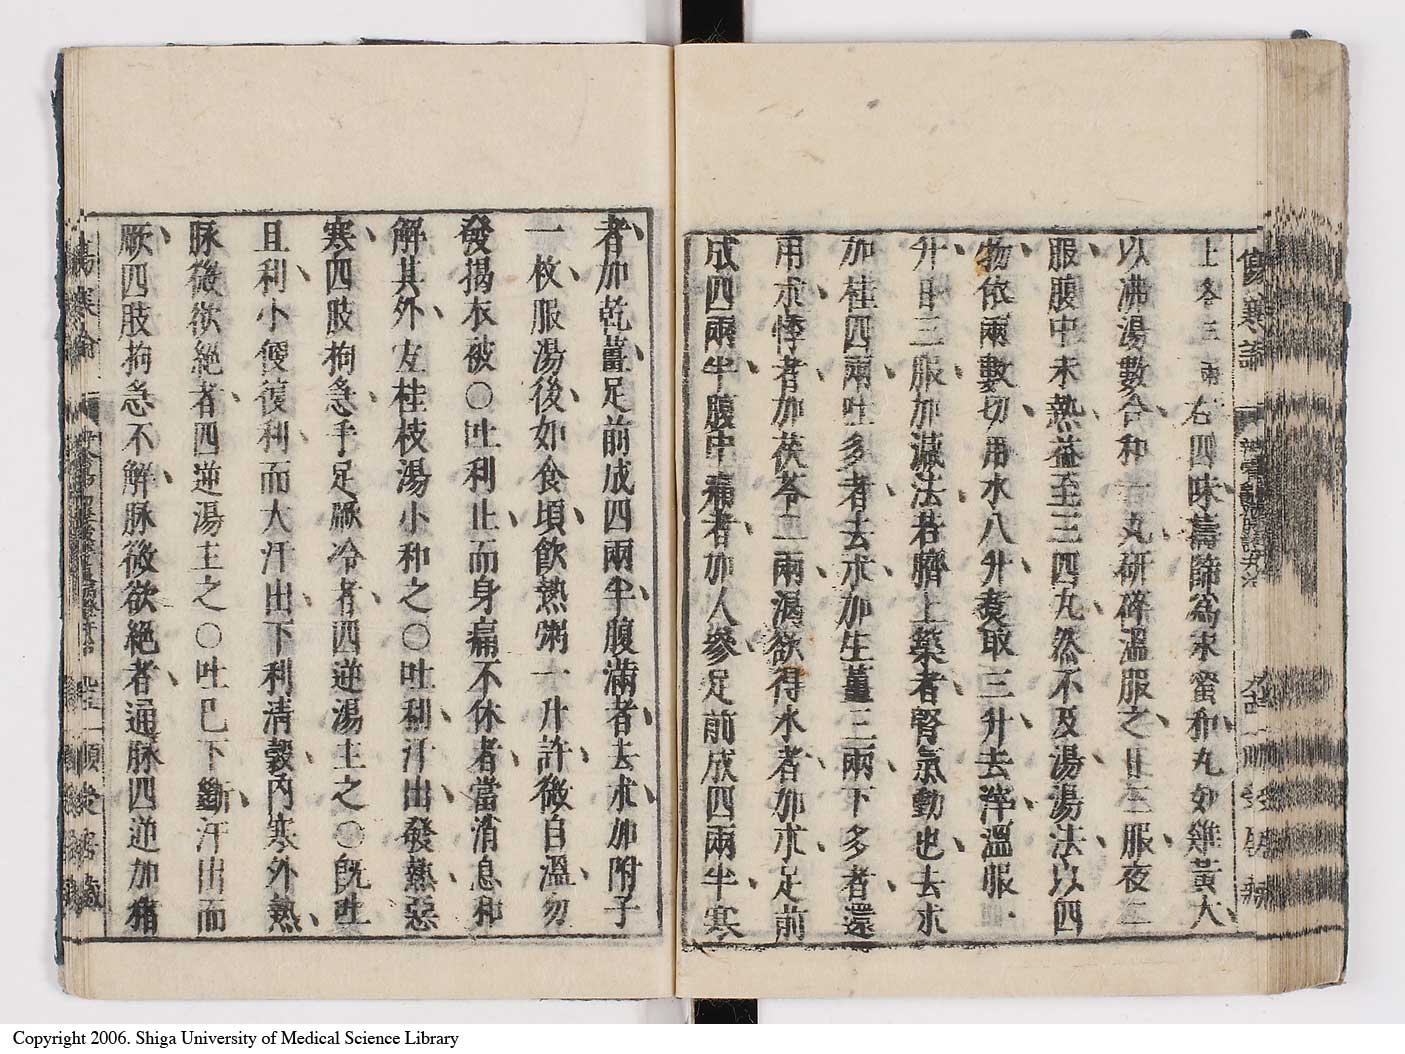 傷寒論
上各三兩右四味擣篩爲末蜜和丸如雞黃大
以沸湯數合和一丸研碎溫服之日三服夜二
服腹中未熱益至三四丸然不及湯湯法以四
物依兩數切用水八升煑取三升去滓溫服一
升日三服加減法若臍上築者腎氣動也去朮
加桂四兩吐多者去朮加生薑三兩下多者還
用朮悸者加茯苓一兩渴欲得水者加朮足前
成四兩半腹中痛者加人參足前成四兩半寒
者加乾薑足前成四兩半腹滿者去朮加附子
一枚服湯後如食頃飲熱粥一升許微自溫勿
發揭衣被○吐利止而身痛不休者當消息和
解其外宜桂枝湯小和之○吐利汗出發熱惡
寒四肢拘急手足厥冷者四逆湯主之○既吐
且利小便復利而大汗出下利清穀內寒外熱
脉微欲絕者四逆湯主之○吐已下斷汗出而
厥四肢拘急不解脉微欲絕者通脉四逆加猪
傷寒論
Copyright 2006. Shiga University of Medical Science Library